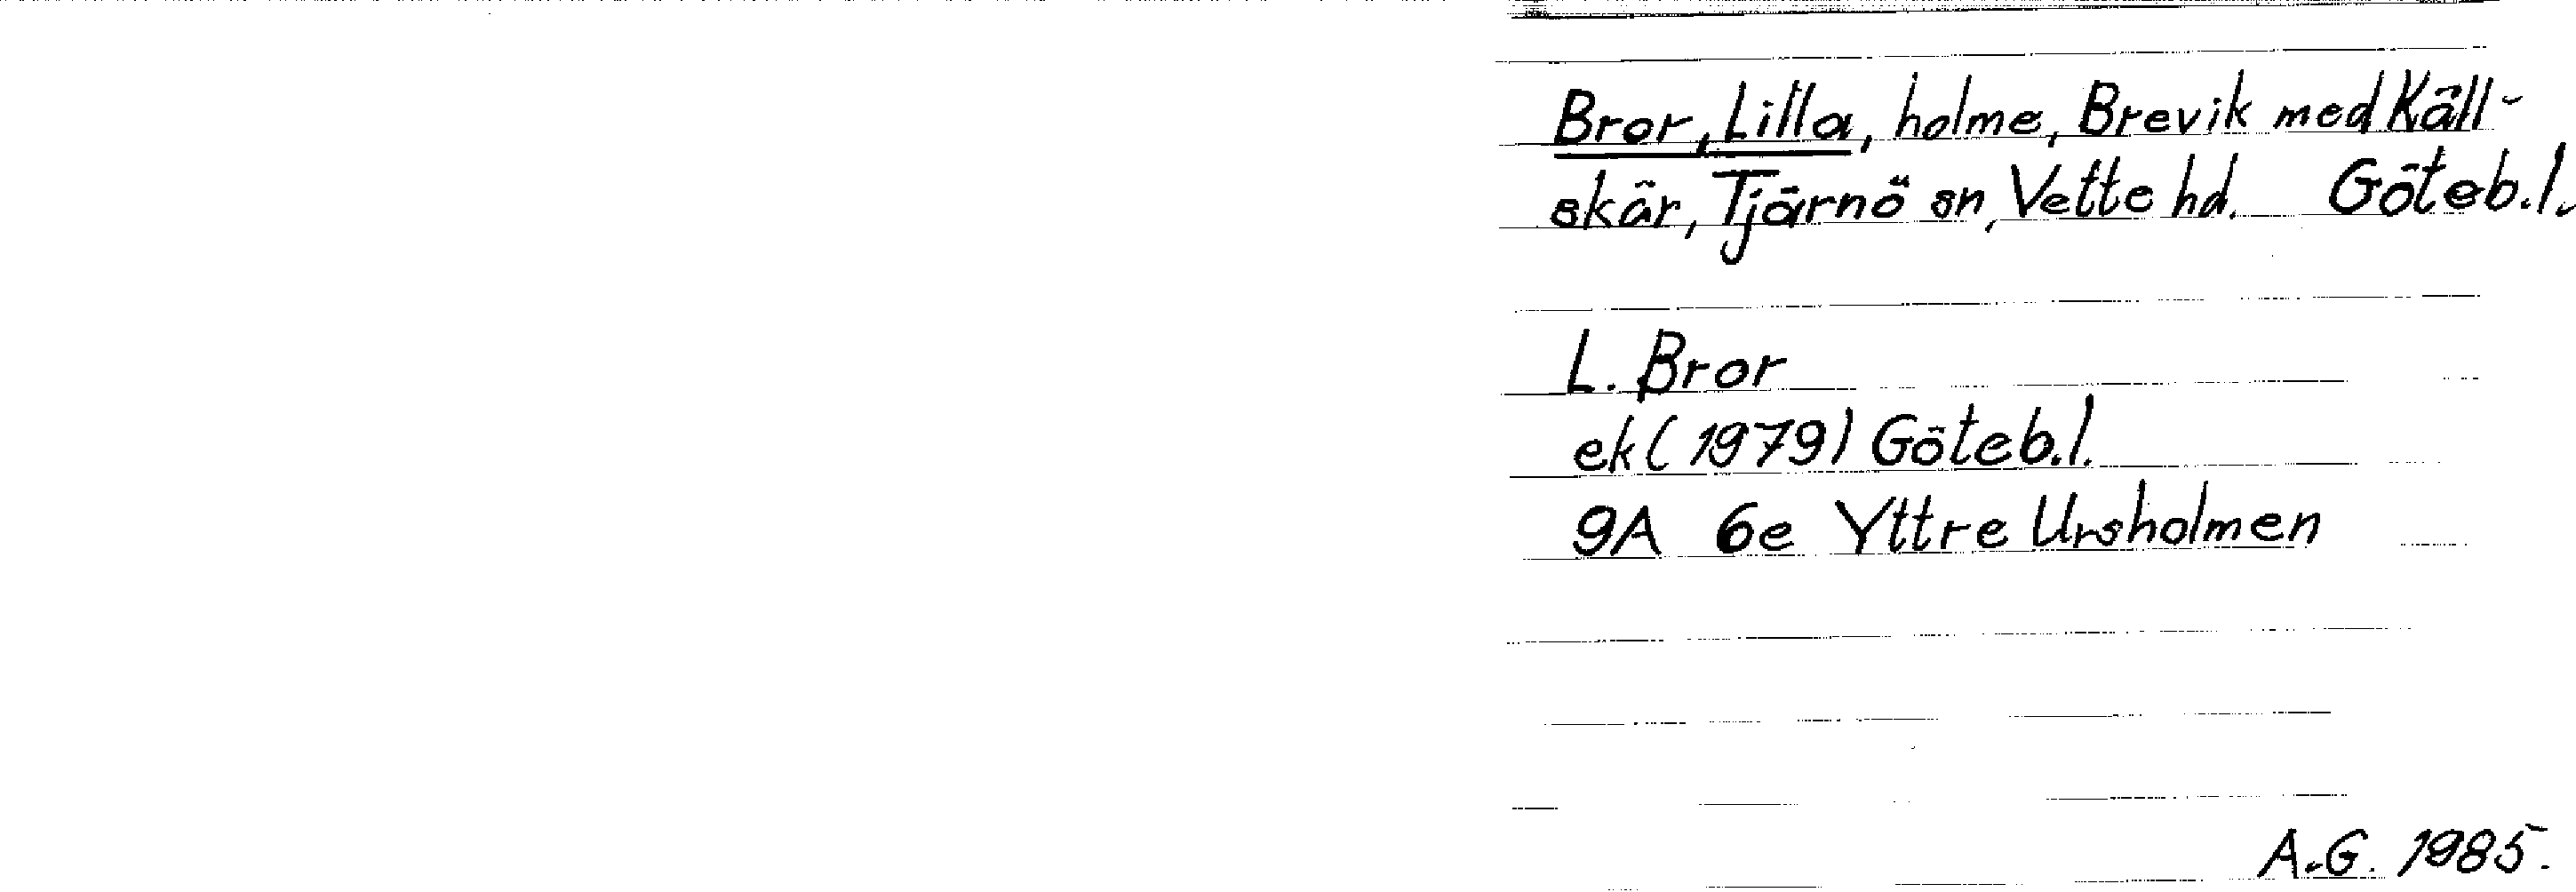 Bror, Lilla, holme, Brevik med Käll-
skär, Tjärnö sn, Vette hd. Göteb.l.
L. Bror
ek (1979) Göteb.l.
9A 6e Yttre Ursholmen
A.G. 1985.